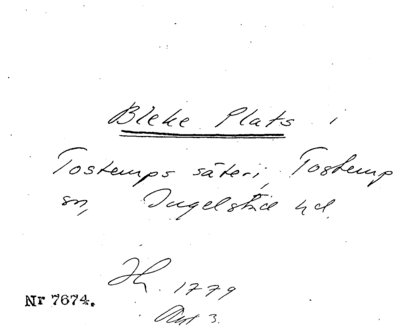 Bleke Plats i
Tostemps säteri, Tostemp
sn, Ingelstad hd.
Jh. 1779
Nr 7674.